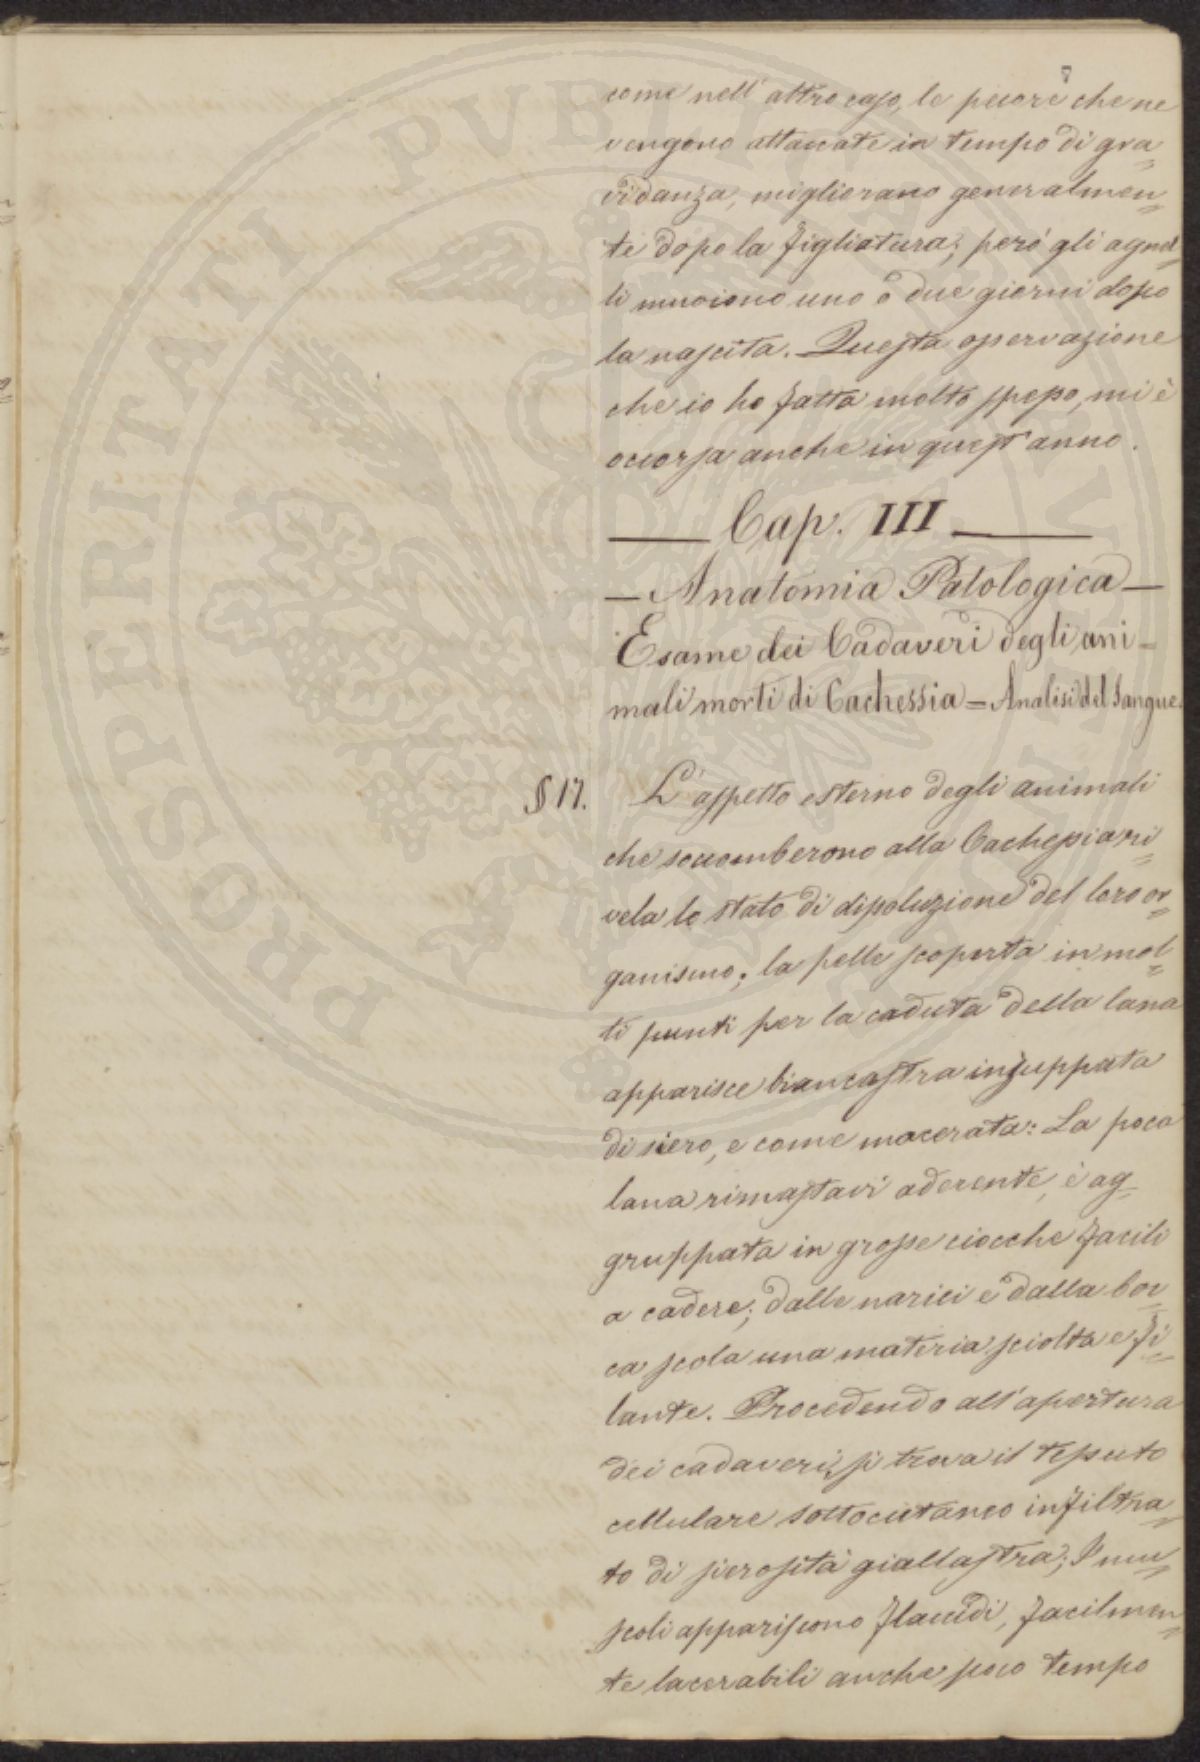 7
come nell' altro caso, le pecore che ne
vengono attaccate in tempo di gra=
vidanza, migliorano generalmen=
te dopo la figliatura; però gli agnel=
li muoiono uno o due giorni dopo
la nascita. Questa osservazione
che io ho fatta molto spesso, mi è
occorsa anche in quest' anno.
— Cap. III —
— Anatomia Patologica —
Esame dei Cadaveri degli ani=
mali morti di Cachessia = Analisi del Sangue.
§ 17. L'aspetto esterno degli animali
che soccomberono alla Cachessia ri=
vela lo stato di dissoluzione del loro or=
ganismo; la pelle scoperta in mol=
ti punti per la caduta della lana
apparisce biancastra insuppata
di siero, e come macerata: La poca
lana rimastavi aderente, è ag=
gruppata in grosse ciocche facili
a cadere; dalle narici e dalla boc=
ca scola una materia sciolta e fi=
lante. Procedendo all' apertura
dei cadaveri, si trova il tessuto
cellulare sottocutaneo infiltra=
to di sierosità giallastra; I mu=
scoli appariscono flaccidi, facilmen=
te lacerabili anche poco tempo
PROSPERITATI PUBLICAE AUGENDAE